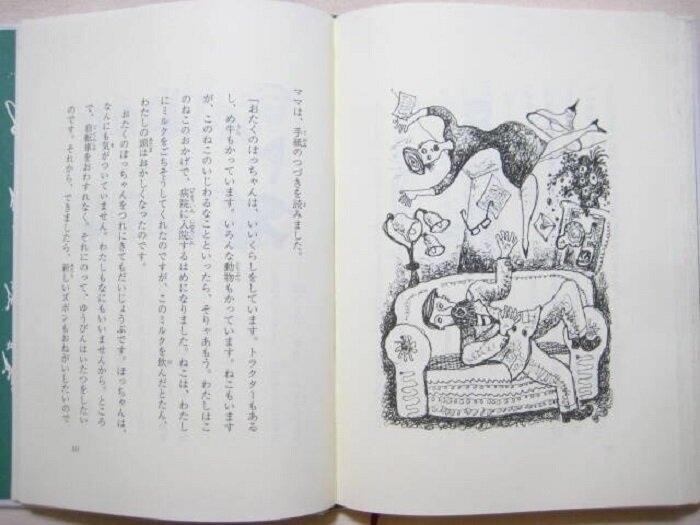 ママは、手紙のつづきを読みました。
「おたくのぼっちゃんは、いいくらしをしています。トラクターもある
し、め牛もかっています。いろんな動物もかっています。ねこもいます
が、このねこのいじわるなことといったら、そりゃあもう。わたしはこ
のねこのおかげで、病院に入院するはめになりました。ねこは、わたし
にミルクをごちそうしてくれたのですが、このミルクを飲んだとたん、
わたしの頭はおかしくなったのです。
おたくのぼっちゃんをつれにきてもだいじょうぶです。ぼっちゃんは、
なんにも気がついていません。わたしもなにもいいませんから。ところ
で、自転車をおわすれなく。それにのって、ゆうびんはいたつをしたい
のです。それから、できましたら、新しいズボンもおねがいしたいので